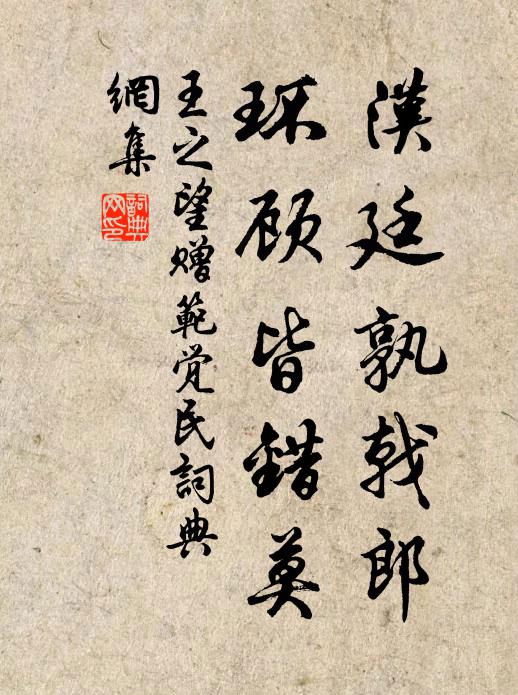 漢廷孰戟郎
环顾皆錯莫
王之望赠範觉民詞典
網集
詞典
网印